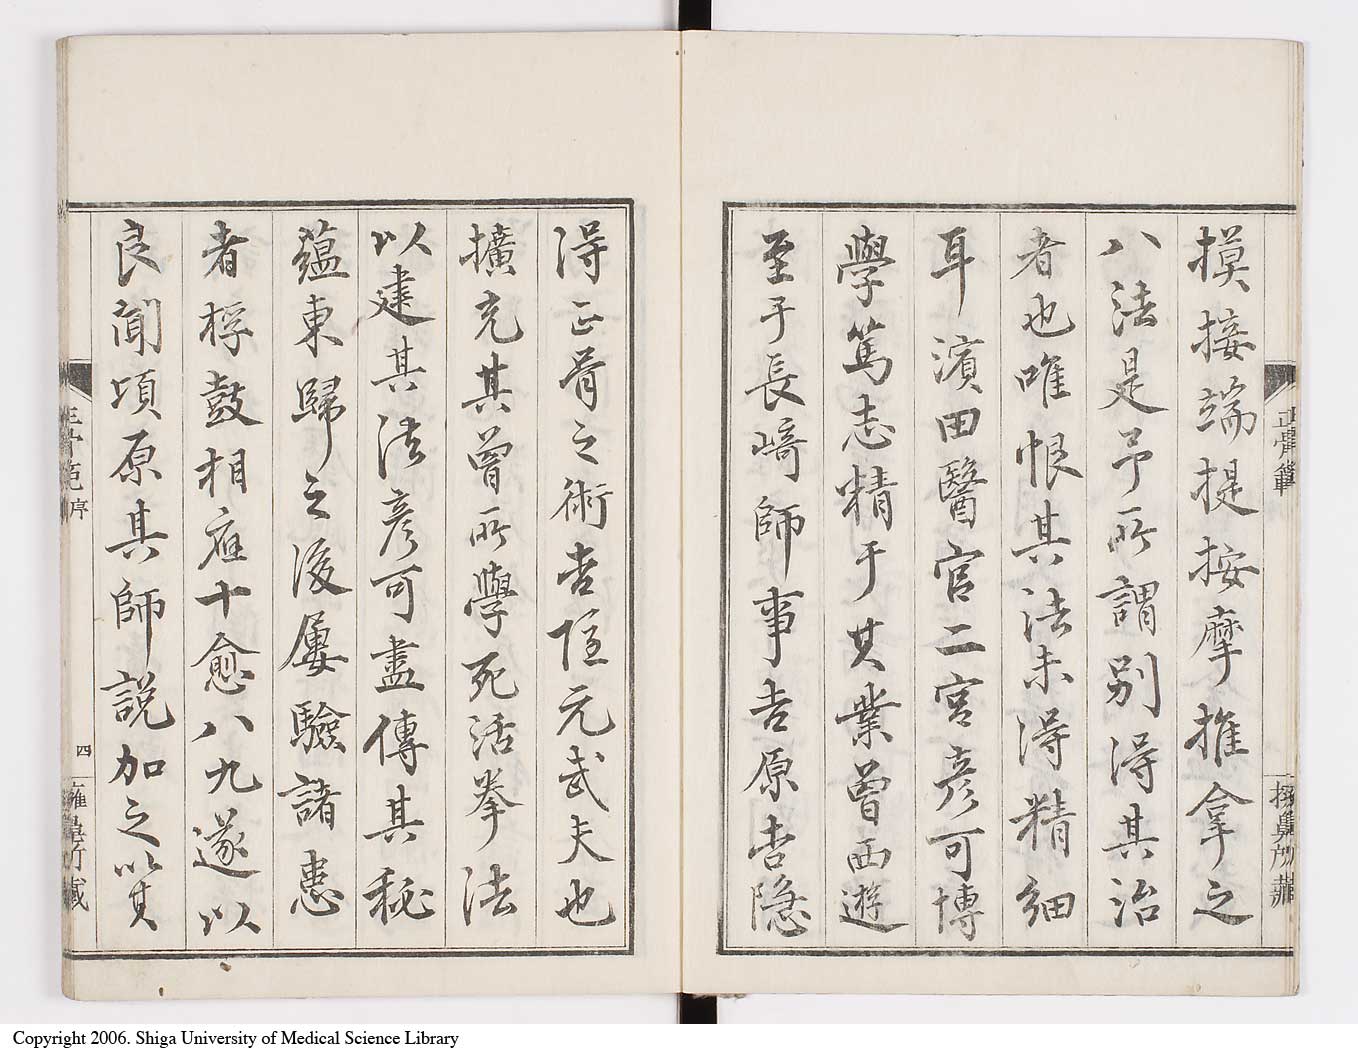 摸接端提按摩推拿之
八法是予所謂別得其治
者也唯恨其法未得精細
耳濱田醫官二宮彦可博
學篤志精于其業曽西遊
至于長﨑師事吉原杏隱
得正骨之術杏隱元武夫也
擴充其曽所學死活拳法
以建其法彦可盡傳其秘
蘊東歸之後屢驗諸患
者桴鼓相應十愈八九遂以
良聞頃原其師説加之以其
正骨範
正骨範 序
四
Copyright 2006. Shiga University of Medical Science Library